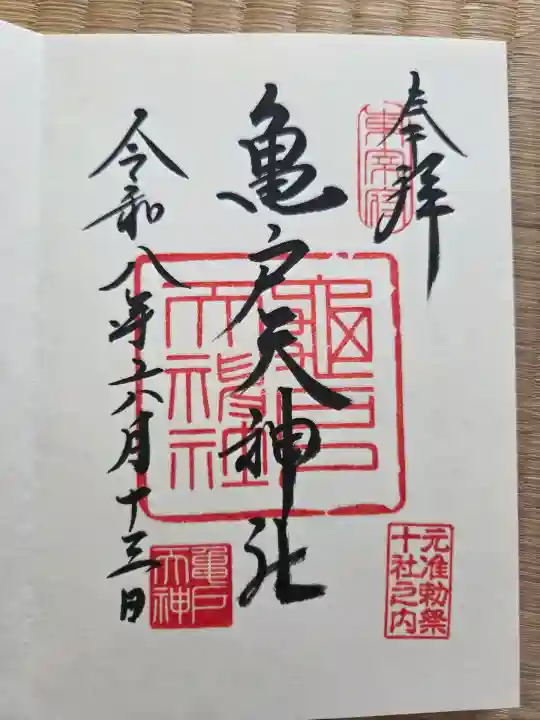 奉拝
東宰府
亀戸天神社
元准勅祭
十社之内
令和八年六月十三日
亀戸
天神